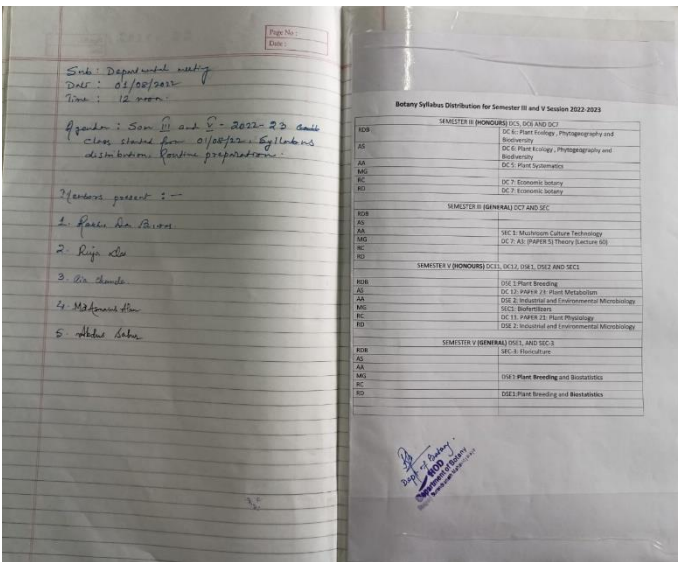 Page No :
Date :
Sub : Departmental meeting
Date : 01/08/2022
Time : 12 noon.
Agenda : Sem III and V - 2022-23
class started from 01/08/22. Syllabus
distribution. Routine preparation.
Members present : —
1.
2. Ruja Das
3. Ria Chanda
4.
5. Abdus Sabur
Botany Syllabus Distribution for Semester III and V Session 2022-2023
SEMESTER III (HONOURS) DC5, DC6 AND DC7
RDB DC 6: Plant Ecology , Phytogeography and
Biodiversity
AS DC 6: Plant Ecology , Phytogeography and
Biodiversity
AA DC 5: Plant Systematics
MG
RC DC 7: Economic botany
RD DC 7: Economic botany
SEMESTER III (GENERAL) DC7 AND SEC
RDB
AS
AA SEC 1: Mushroom Culture Technology
MG DC 7: A3: (PAPER 5) Theory (Lecture 60)
RC
RD
SEMESTER V (HONOURS) DC11, DC12, DSE1, DSE2 AND SEC1
RDB DSE 1:Plant Breeding
AS DC 12: PAPER 23: Plant Metabolism
AA DSE 2: Industrial and Environmental Microbiology
MG SEC1: Biofertilizers
RC DC 11: PAPER 21: Plant Physiology
RD DSE 2: Industrial and Environmental Microbiology
SEMESTER V (GENERAL) DSE1, AND SEC-3
RDB SEC-3: Floriculture
AS
AA
MG DSE1:Plant Breeding and Biostatistics
RC
RD DSE1:Plant Breeding and Biostatistics
Dept of Botany.
HOD
Department of Botany